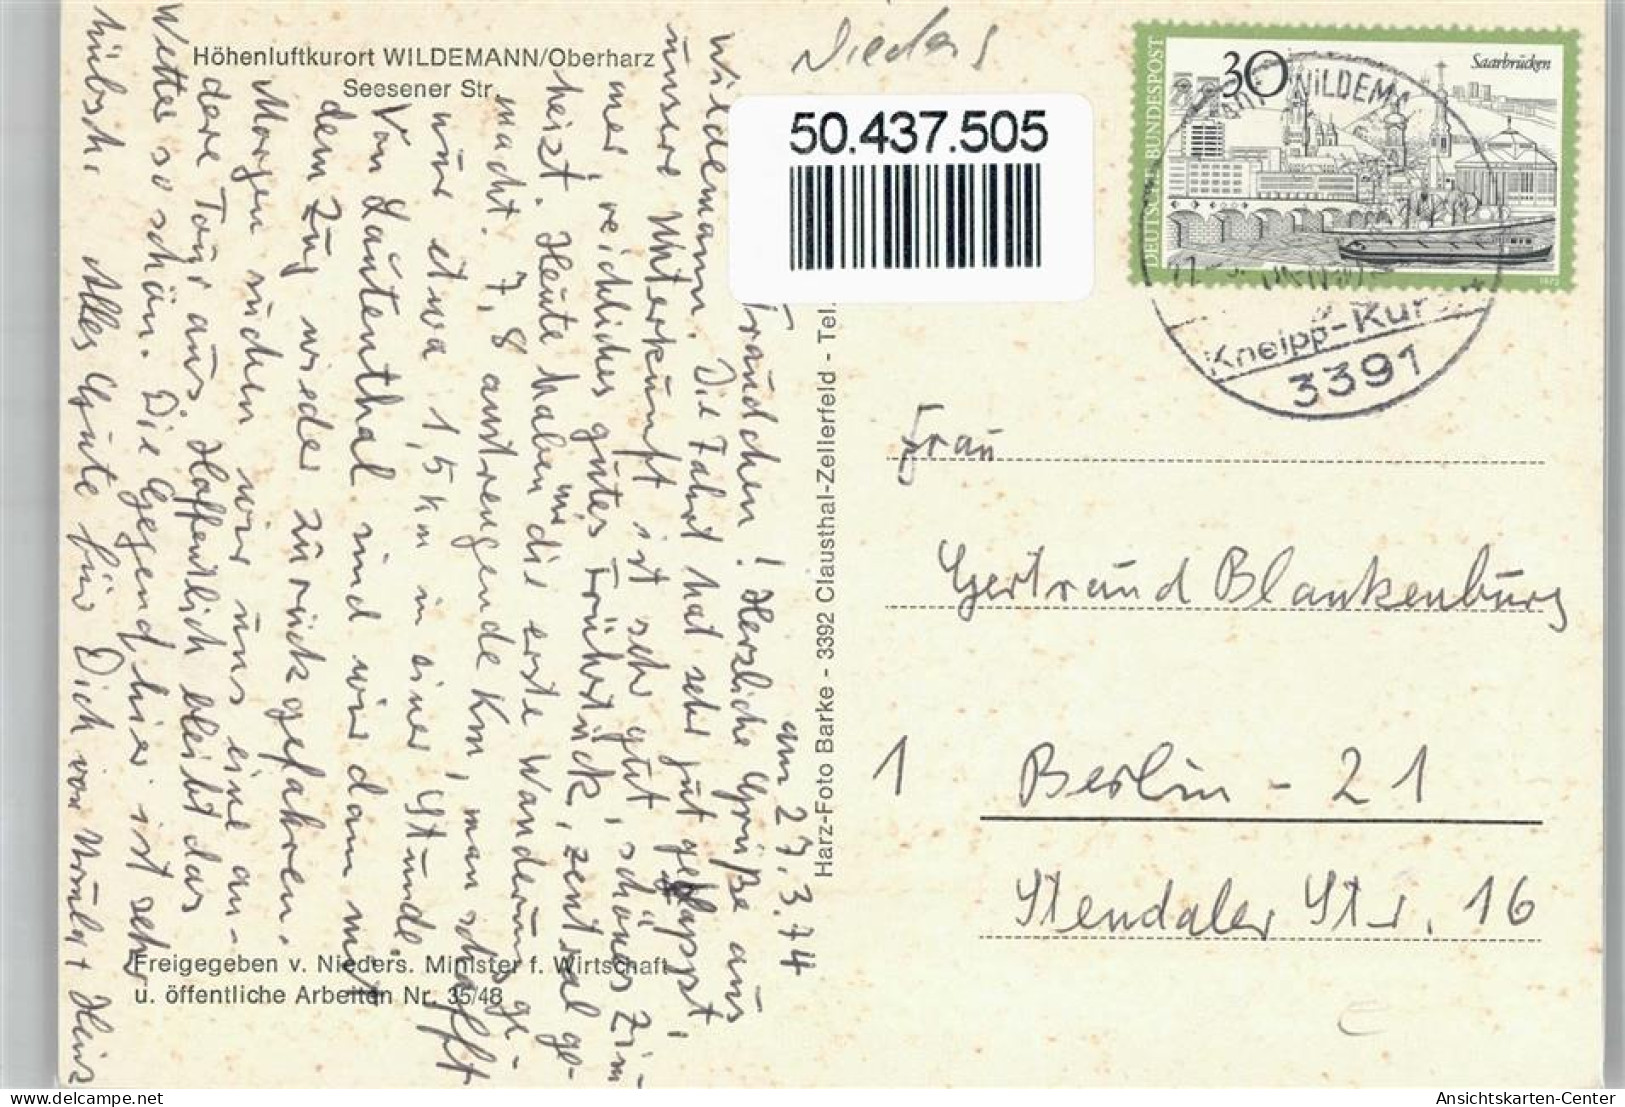 Höhenluftkurort WILDEMANN/Oberharz
Seesener Str.
Nieders
50.437.505
DEUTSCHE BUNDESPOST
30
Saarbrücken
WILDEMA
Kneipp-Kur
3391
am 27.3.74
Traudchen! Herzliche Grüße aus
Wildemann. Die Fahrt hat sehr gut geklappt,
unsere Unterkunft ist sehr gut, schönes Zim-
mer, reichliches gutes Frühstück, zentral ge-
heizt. Heute haben wir die erste Wanderung ge-
macht. 7,8 anstrengende Km, man schafft
nur etwa 1,5 Km in einer Stunde.
Von Lautenthal sind wir dann mit
dem Zug wieder zurückgefahren.
Morgen suchen wir uns eine an-
dere Tour aus. Hoffentlich bleibt das
Wetter so schön. Die Gegend hier ist sehr
hübsch. Alles Gute für Dich von Heinz
Freigegeben v. Nieders. Minister f. Wirtschaft
u. öffentliche Arbeiten Nr. 35/48
Harz-Foto Barke - 3392 Clausthal-Zellerfeld - Tel.
Frau
Gertraud Blankenburg
1 Berlin - 21
Stendaler Str. 16
www.ansichtskarten-center.com
Ansichtskarten-Center